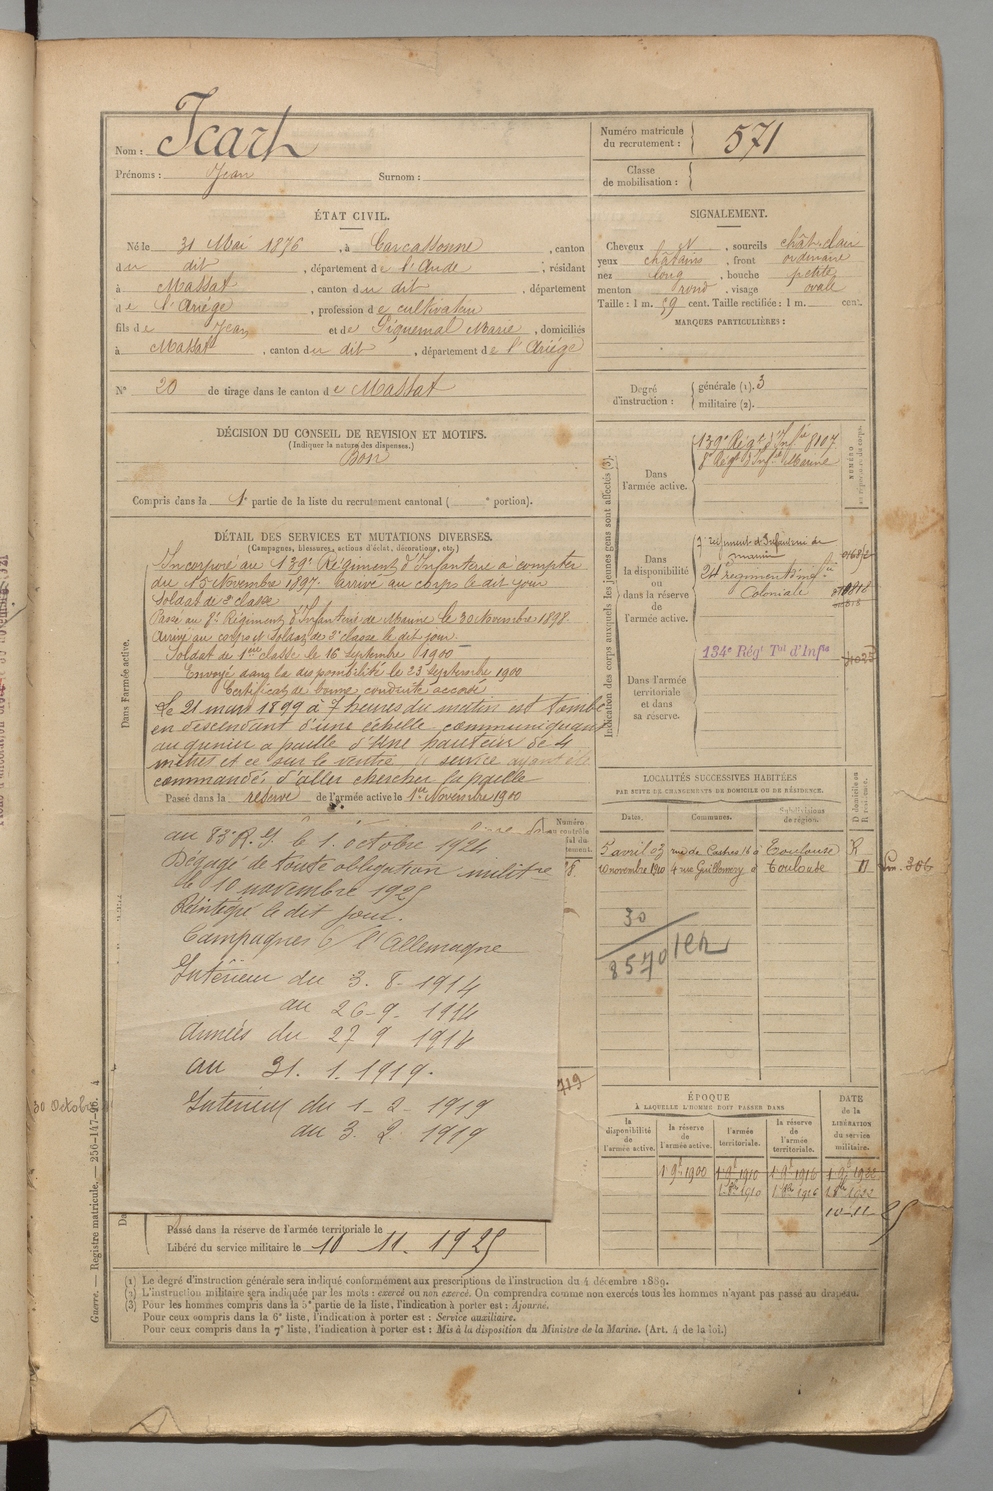 Nom : Icart
Prénoms : Jean Surnom :
Numéro matricule du recrutement : 571
Classe de mobilisation :
ÉTAT CIVIL.
Né le 31 Mai 1876, à Carcassonne, canton
du dit, département de l'Aude, résidant
à Massat, canton du dit, département
de l'Ariège, profession de cultivateur
fils de Jean et de Piquemal Marie, domiciliés
à Massat, canton du dit, département de l'Ariège
N° 20 de tirage dans le canton de Massat
SIGNALEMENT.
Cheveux et sourcils chât. clair
yeux châtains, front ordinaire
nez long, bouche petite
menton rond, visage ovale
Taille : 1 m. 59 cent. Taille rectifiée : 1 m. cent.
MARQUES PARTICULIÈRES :
Degré d'instruction : générale (1). 3
militaire (2).
DÉCISION DU CONSEIL DE REVISION ET MOTIFS.
(Indiquer la nature des dispenses.)
Bon
Compris dans la 1e partie de la liste du recrutement cantonal ( e portion).
DÉTAIL DES SERVICES ET MUTATIONS DIVERSES.
(Campagnes, blessures, actions d'éclat, décorations, etc.)
Dans l'armée active.
Incorporé au 139e Régiment d'Infanterie à compter
du 15 Novembre 1897. Arrivé au corps le dit jour
Soldat de 2e classe
Passé au 8e Régiment d'Infanterie de Marine le 30 Novembre 1898.
Arrivé au corps et Soldat de 2e classe le dit jour.
Soldat de 1ère classe le 16 Septembre 1900
Envoyé dans la disponibilité le 23 septembre 1900
Certificat de bonne conduite accordé
Le 21 mars 1899 à 7 heures du matin est tombé
en descendant d'une échelle communiquant
au grenier a paille d'une hauteur de 4
mètres et ce sur le ventre service ayant été
commandés d'aller chercher la paille
Passé dans la réserve de l'armée active le 1er Novembre 1900
au 83e R. I. le 1. octobre 1924
Dégagé de toute obligation militre
le 10 novembre 1925
Réintégré le dit jour.
Campagnes C/ l'Allemagne
Intérieur du 3. 8. 1914
au 26-9-1914
Armées du 27 9 1914
au 31. 1. 1919.
Intérieur du 1-2-1919
au 3. 2 1919
Passé dans la réserve de l'armée territoriale le
Libéré du service militaire le 10 11. 1925
Indication des corps auxquels les jeunes gens sont affectés (3).
NUMÉRO
Dans l'armée active.
139e Régt d'Infie 8107
8e Régt d'Infie Marine
Dans la disponibilité ou dans la réserve de l'armée active.
7e régiment d'Infanterie de marine
24e régiment d'infie Coloniale
Dans l'armée territoriale et dans sa réserve.
134e Régt Tal d'Infie
LOCALITÉS SUCCESSIVES HABITÉES
PAR SUITE DE CHANGEMENTS DE DOMICILE OU DE RÉSIDENCE.
Dates. Communes. Subdivisions de région. D domicile ou R résidence.
5 avril 03 rue de Castres 16 à Toulouse R
10 novembre 1920 4 rue Guillemery à Toulouse D
30
8570
ÉPOQUE
À LAQUELLE L'HOMME DOIT PASSER DANS
la disponibilité de l'armée active.
la réserve de l'armée active.
l'armée territoriale.
la réserve de l'armée territoriale.
DATE de la LIBÉRATION du service militaire.
1 9bre 1900 1 9bre 1910 1 9bre 1916 1 9bre 1922
1 8bre 1910 1 8bre 1916 1 8bre 1922
10-11-25
30 Octobre
Guerre. — Registre matricule. — 256-147-96. 4
(1) Le degré d'instruction générale sera indiqué conformément aux prescriptions de l'instruction du 4 décembre 1889.
(2) L'instruction militaire sera indiquée par les mots : exercé ou non exercé. On comprendra comme non exercés tous les hommes n'ayant pas passé au drapeau.
(3) Pour les hommes compris dans la 5e partie de la liste, l'indication à porter est : Ajourné.
Pour ceux compris dans la 6e liste, l'indication à porter est : Service auxiliaire.
Pour ceux compris dans la 7e liste, l'indication à porter est : Mis à la disposition du Ministre de la Marine. (Art. 4 de la loi.)